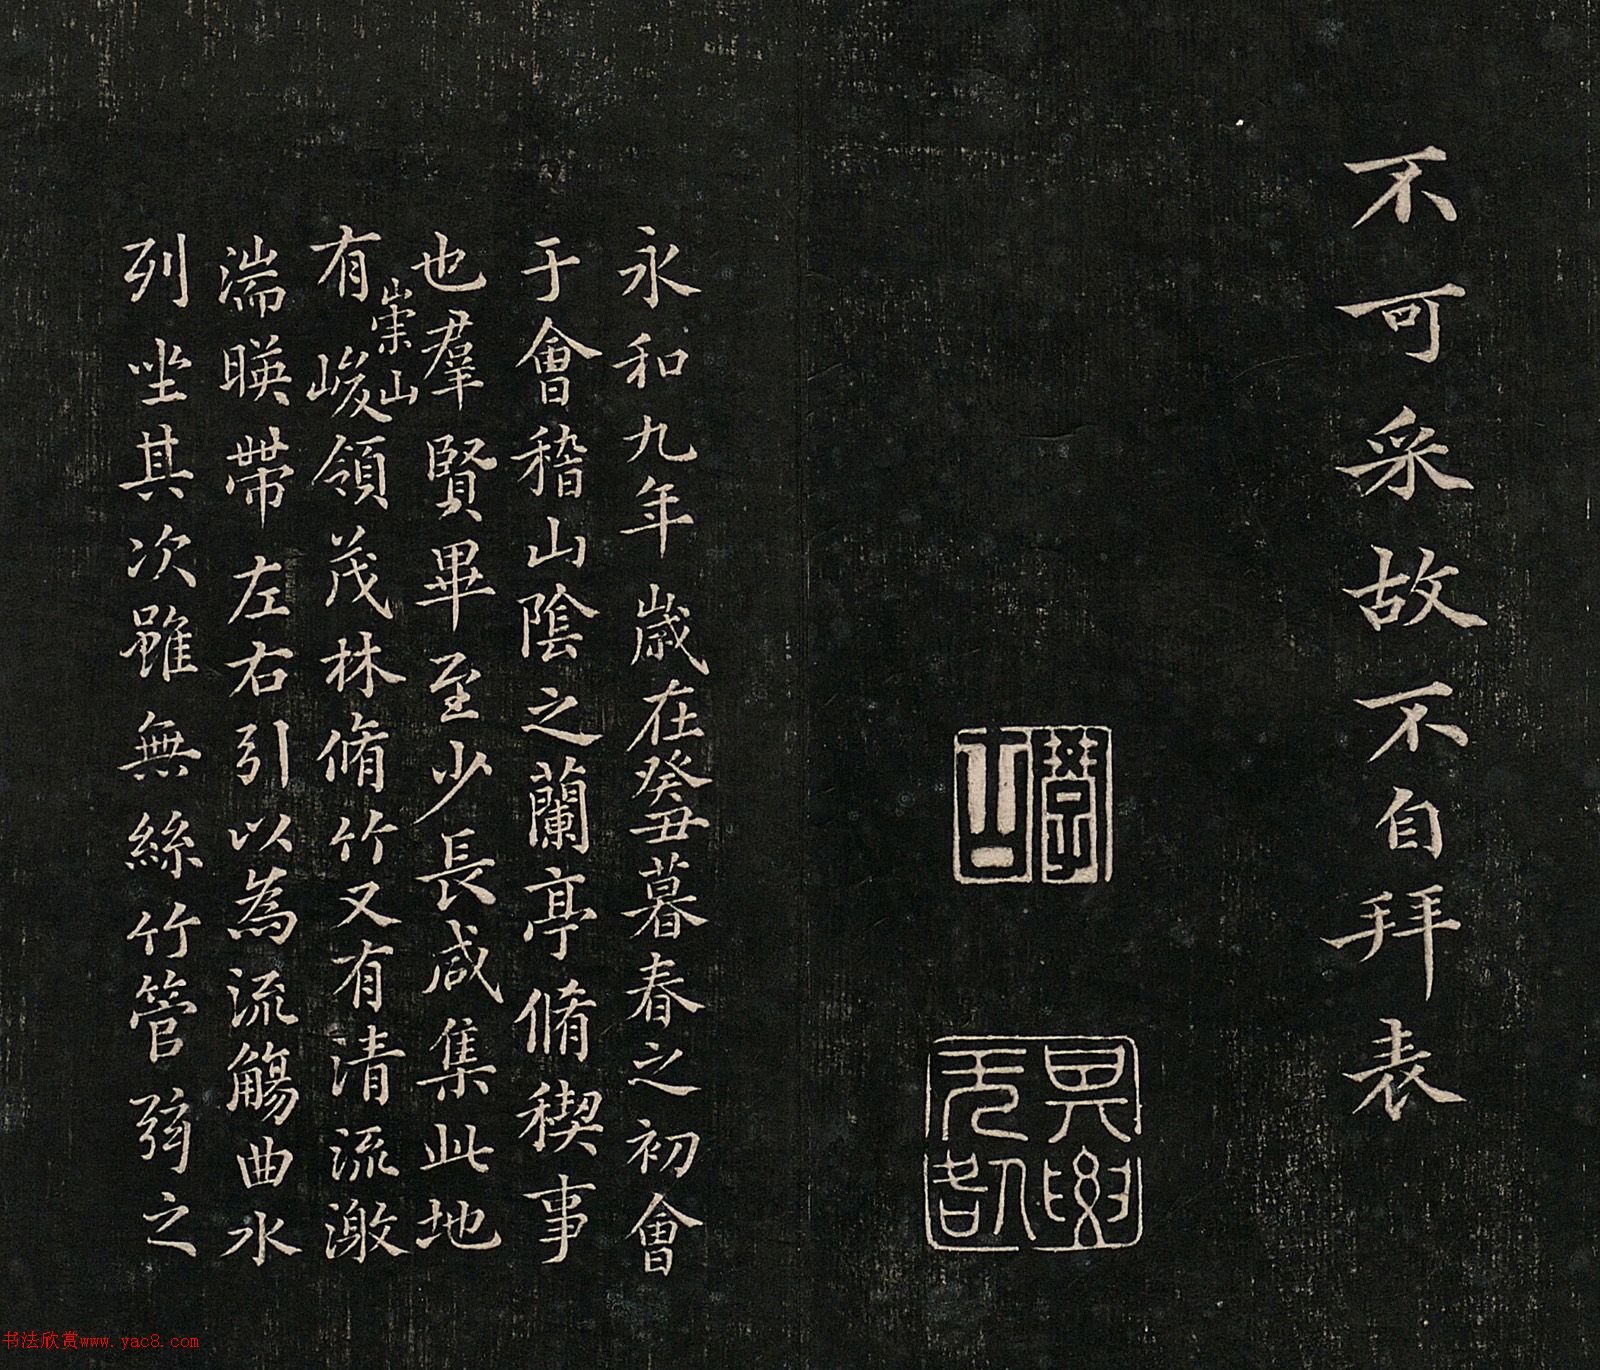 不可采故不自拜表
永和九年歲在癸丑暮春之初會
于會稽山陰之蘭亭脩稧事
也羣賢畢至少長咸集此地
有崇山峻領茂林脩竹又有清流激
湍暎帶左右引以為流觴曲水
列坐其次雖無絲竹管弦之
书法欣赏www.yac8.com